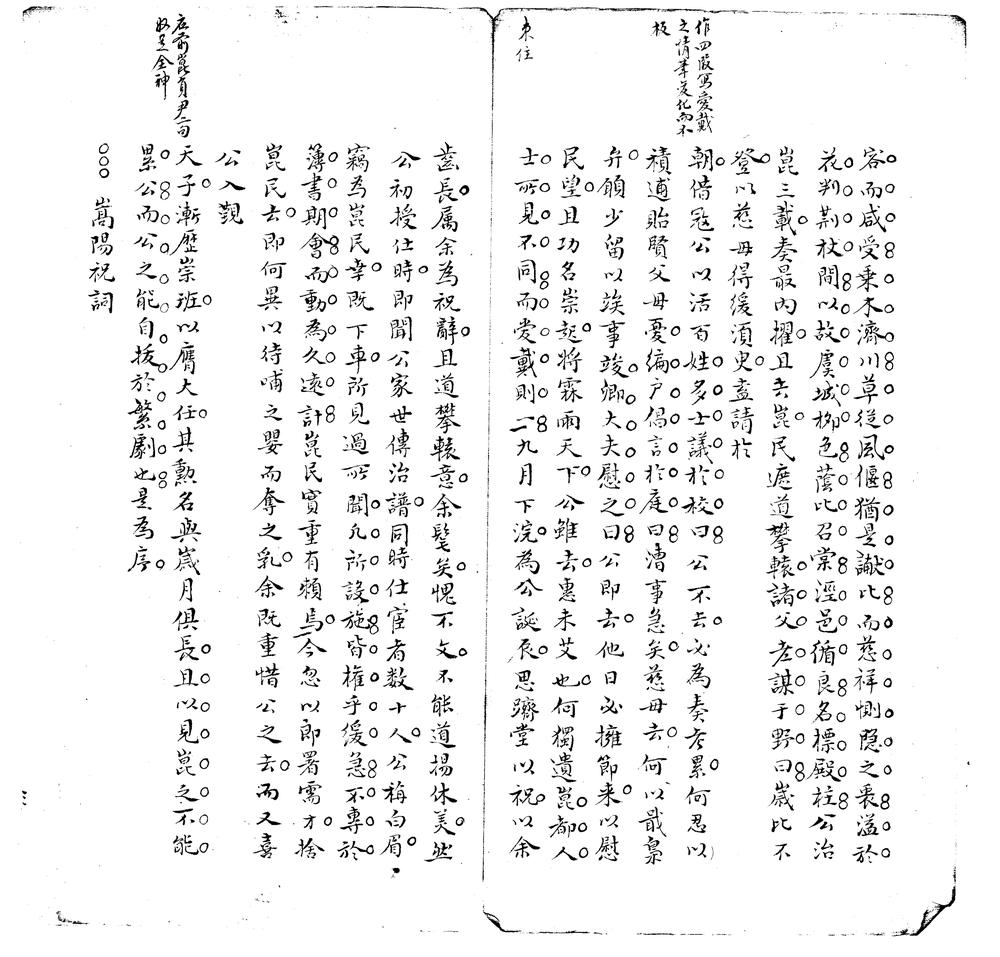 作四股寫愛戴
之情筆變化而不
板
束住
容而咸受乘木濟川草從風偃猶是讞比而慈祥惻隱之衷溢於
花判荆杖間以故虞城柳色蔭比召棠涇邑循良名標殿柱公治
崑三載奏最內擢且去崑民遮道攀轅諸父老謀于野曰歲比不
登以慈母得緩須臾盍請於
朝借寇公以活百姓多士議於校曰公不去必為奏考累何忍以
積逋貽賢父母憂編户倡言於庭曰漕事急矣慈母去何以戢梟
弁願少留以竢事竣卿大夫慰之曰公即去他日必擁節來以慰
民望且功名崇起將霖雨天下公雖去惠未艾也何獨遺崑都人
士所見不同而愛戴則一九月下浣為公誕辰思躋堂以祝以余
齒長属余為祝辭且道攀轅意余髦矣愧不文不能道揚休美然
公初授仕時即聞公家世傳治譜同時仕宦者數十人公稱白眉
竊為崑民幸既下車所見過所聞凡所設施皆權乎緩急不專於
簿書期會而動為久遠計崑民實重有賴焉今忽以郎署需才捨
崑民去即何異以待哺之嬰而奪之乳余既重惜公之去而又喜
公入覲
天子漸歷崇班以膺大任其勲名與歲月俱長且以見崑之不能
累公而公之能自拔於繁劇也是為序
右前崑貟尹二句
奴是全神
嵩陽祝詞